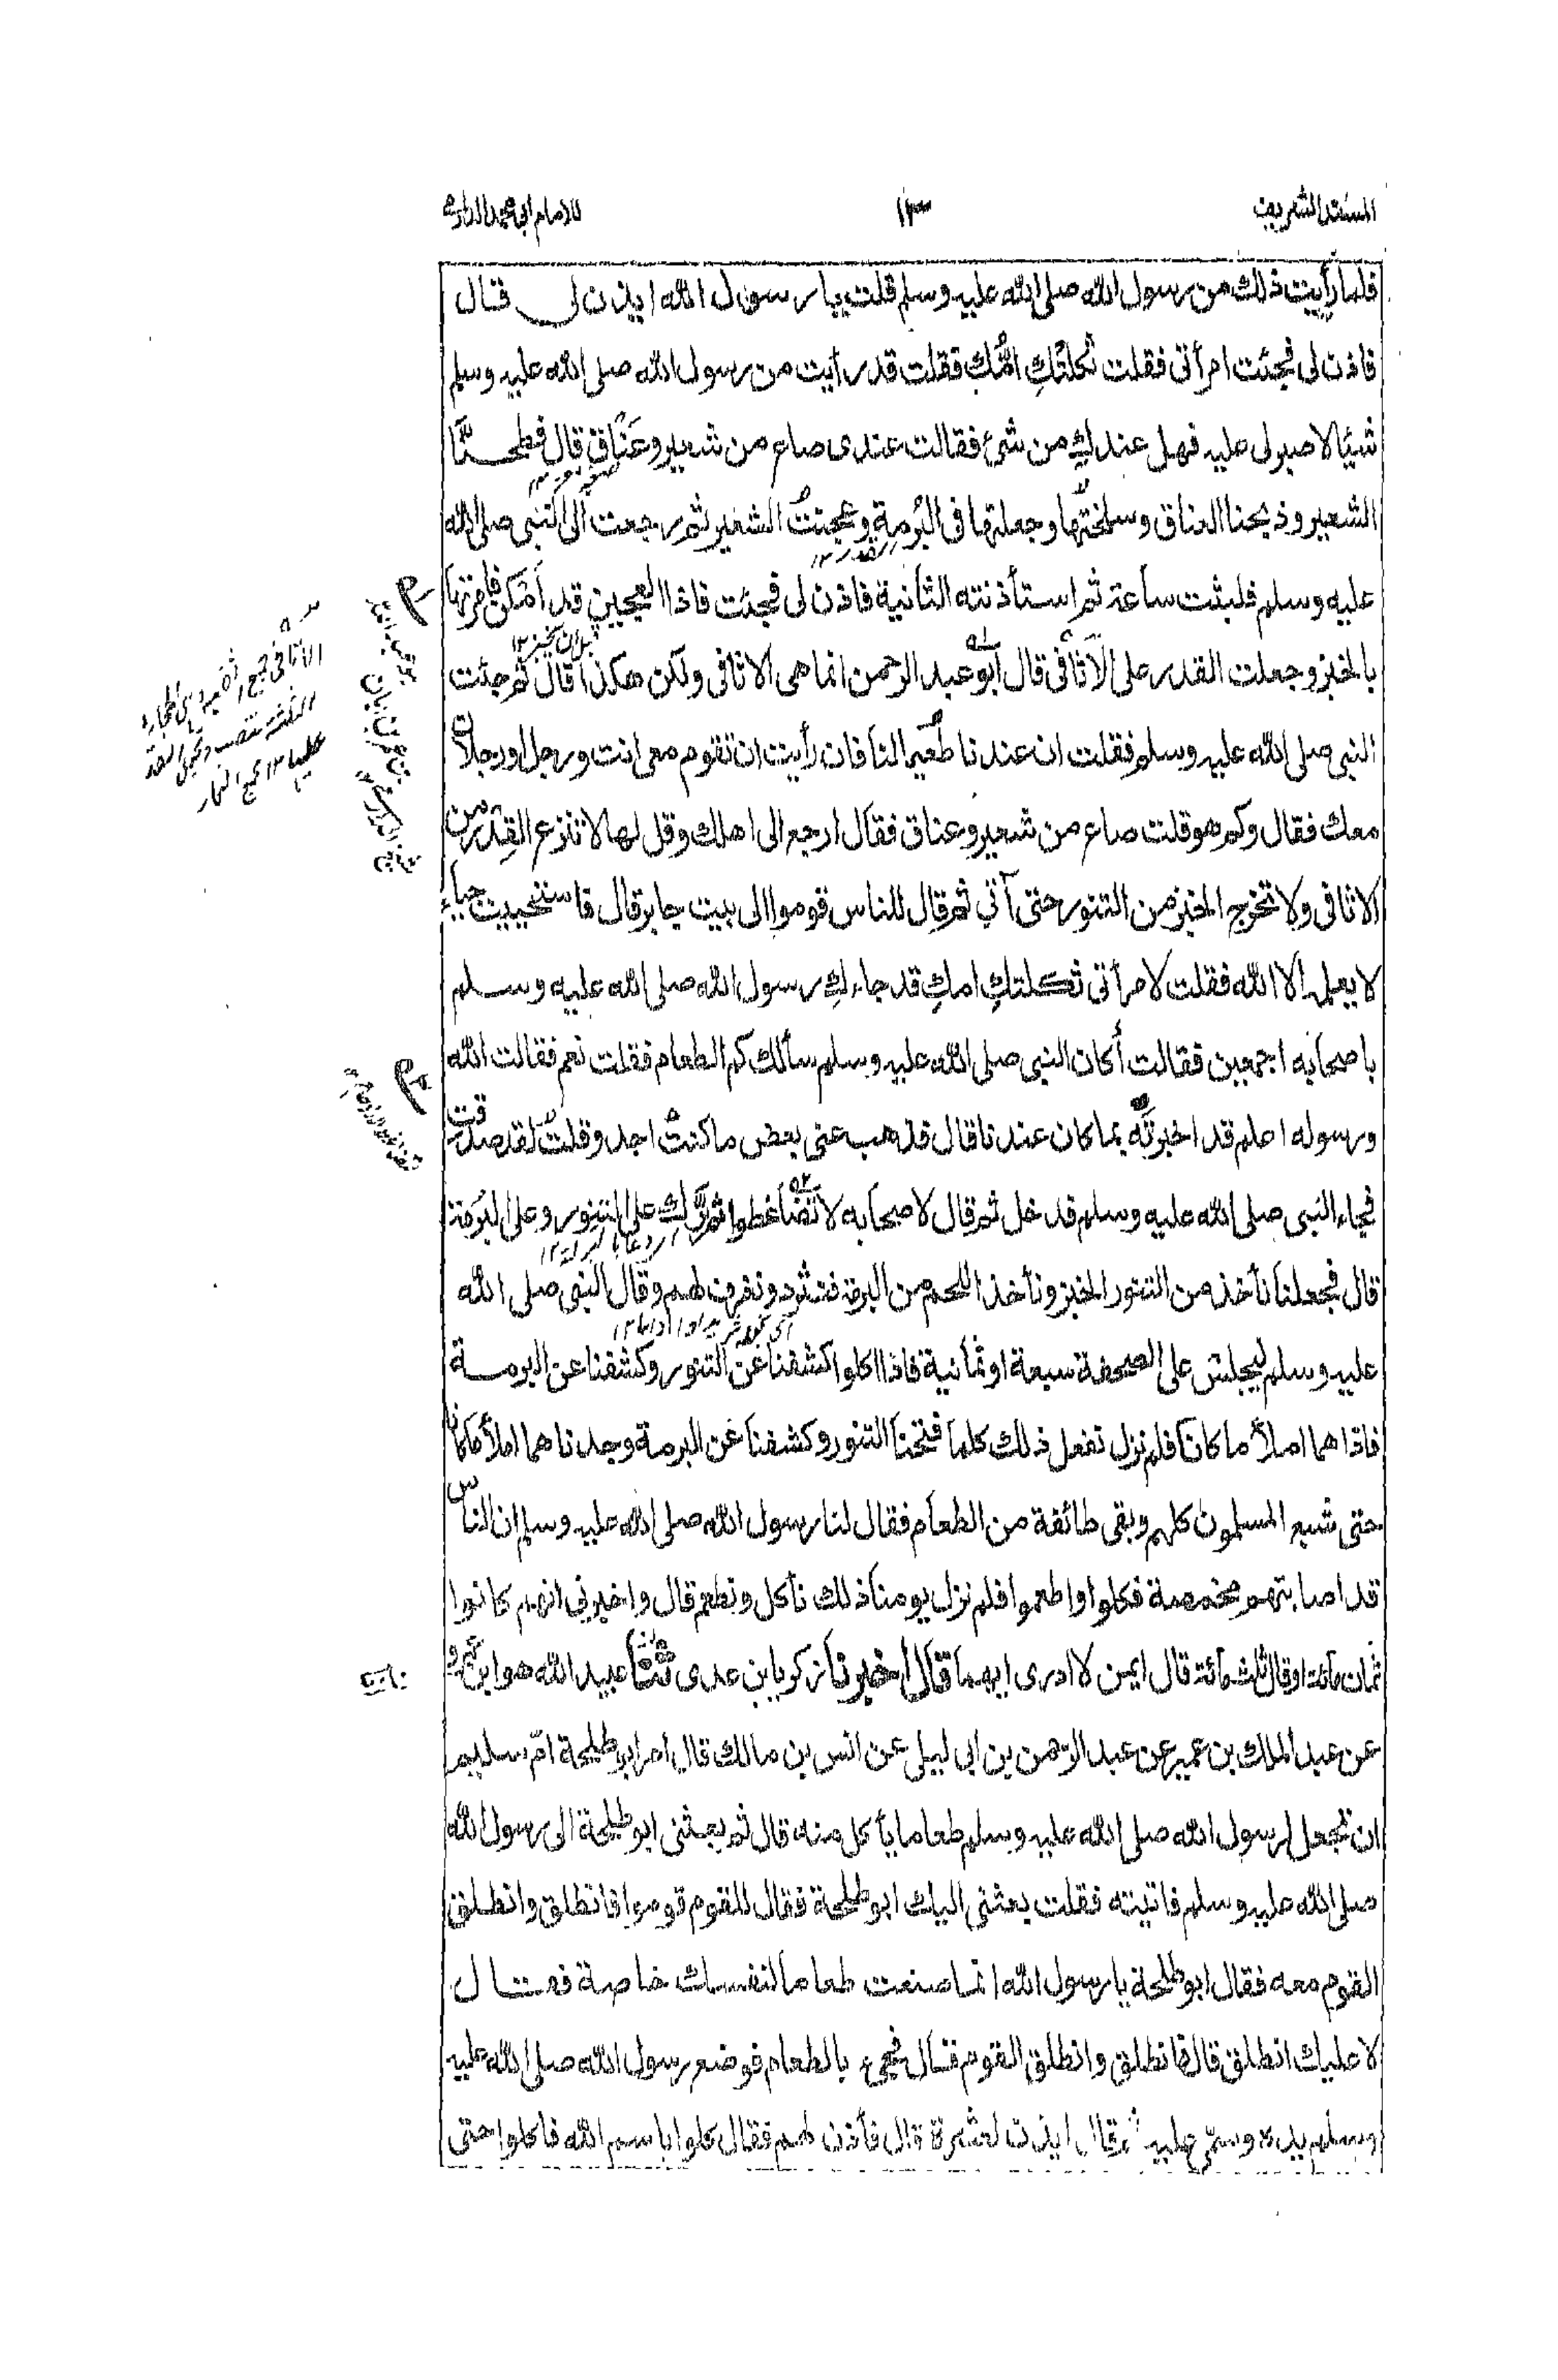 المسند الشريف
١٣
للامام ابي محمد الدارمي
فلما رأيت ذلك من رسول الله صلى الله عليه وسلم قلت يا رسول الله ايذن لى قال
فاذن لى فجئت امرأتى فقلت ثكلتكِ امُّكِ فقلت قد رأيت من رسول الله صلى الله عليه وسلم
شيئا لا صبر لى عليه فهل عندكِ من شئ فقالت عندى صاع من شعير وعَنَاق قال فطحنّا
الشعير وذبحنا العناق وسلختُها وجعلتها فى البُرمةِ وعجنتُ الشعير ثم رجعت الى النبى صلى الله
عليه وسلم فلبثت ساعة ثم استأذنته الثانية فاذن لى فجئت فاذا العجين قد أمْكن فامرتها
قبل ان يخبز ١٢
بالخبز وجعلت القدر على الاَثافى قال ابو عبد الرحمن انما هى الاثافى ولكن هكذا قال ثم جئت
النبى صلى الله عليه وسلم فقلت ان عندنا طُعَيما لنا فان رأيت ان تقوم معى انت ورجل اورجلان
معك فقال وكم هو قلت صاع من شعير وعناق فقال ارجع الى اهلك وقل لها لا تنزع القِدر من
الاثافى ولا تخرج الخبز من التنور حتى آتي ثم قال للناس قوموا الى بيت جابر قال فاستحييت حياء
لا يعلمه الا الله فقلت لامرأتى ثكلتكِ امكِ قد جاءكِ رسول الله صلى الله عليه وسلم
باصحابه اجمعين فقالت أكان النبى صلى الله عليه وسلم سألك كم الطعام فقلت نعم فقالت الله
ورسوله اعلم قد اخبرتَه بما كان عندنا قال فذهب عنى بعض ما كنت اجد وقلتُ لقد صدقت
فجاء النبى صلى الله عليه وسلم فدخل ثم قال لاصحابه لا تضاغطوا ثم برَّك على التنور وعلى البُرمة
قال فجعلنا نأخذ من التنور الخبز ونأخذ اللحم من البرمة فنثرد ونغرف لهم وقال النبى صلى الله
عليه وسلم ليجلس على الصحفة سبعة او ثمانية فاذا اكلوا كشفنا عن التنور وكشفنا عن البرمة
فاذا هما املأ ما كانا فلم نزل نفعل ذلك كلما فتحنا التنور وكشفنا عن البرمة وجدناهما املأ ما كانا
حتى شبع المسلمون كلهم وبقى طائفة من الطعام فقال لنا رسول الله صلى الله عليه وسلم ان الناس
قد اصابتهم مخمصة فكلوا واطعموا فلم نزل يومنا ذلك نأكل ونطعم قال واخبرنى انهم كانوا
ثمان مائة او قال ثلث مائة قال ايمن لا ادرى ايهما قال اخبرنا زكريا بن عدى ثنا عبيد الله هو ابن عمرو
عن عبد الملك بن عمير عن عبد الرحمن بن ابى ليلى عن انس بن مالك قال امر ابو طلحة امّ سليم
ان تجعل لرسول الله صلى الله عليه وسلم طعاما يأكل منه قال ثم بعثنى ابو طلحة الى رسول الله
صلى الله عليه وسلم فاتيته فقلت بعثنى اليك ابو طلحة فقال للقوم قوموا فانطلق وانطلق
القوم معه فقال ابو طلحة يا رسول الله انما صنعت طعاما لنفسك خاصة فقال
لا عليك انطلق قال فانطلق وانطلق القوم قال فجئ بالطعام فوضع رسول الله صلى الله عليه
وسلم يده وسمّى عليه ثم قال ايذن لعشرة قال فأذن لهم فقال كلوا باسم الله فاكلوا حتى